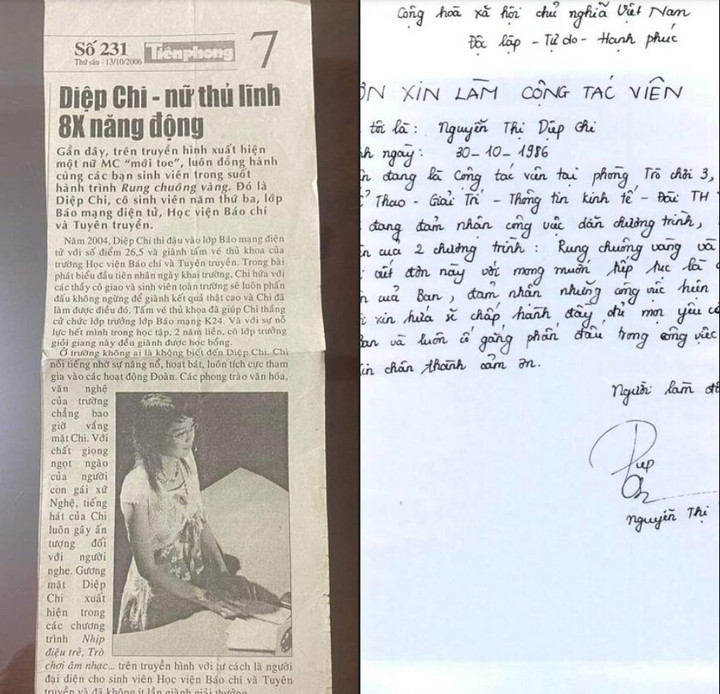 Số 231
Thứ sáu - 13/10/2006
Tiền phong
7
Diệp Chi - nữ thủ lĩnh
8X năng động
Gần đây, trên truyền hình xuất hiện
một nữ MC “mới toe”, luôn đồng hành
cùng các bạn sinh viên trong suốt
hành trình Rung chuông vàng. Đó là
Diệp Chi, cô sinh viên năm thứ ba, lớp
Báo mạng điện tử, Học viện Báo chí
và Tuyên truyền.
Năm 2004, Diệp Chi thi đậu vào lớp Báo mạng điện
tử với số điểm 26,5 và giành tấm vé thủ khoa của
trường Học viện Báo chí và Tuyên truyền. Trong bài
phát biểu đầu tiên nhân ngày khai trường, Chi hứa với
các thầy cô giáo và sinh viên toàn trường sẽ luôn phấn
đấu không ngừng để giành kết quả thật cao và Chi đã
làm được điều đó. Tấm vé thủ khoa đã giúp Chi thắng
cử chức lớp trưởng lớp Báo mạng K24. Và với sự nỗ
lực hết mình trong học tập, 2 năm liền, cô lớp trưởng
giỏi giang này đều giành được học bổng.
Ở trường không ai là không biết đến Diệp Chi. Chi
nổi tiếng nhờ sự năng nổ, hoạt bát, luôn tích cực tham
gia vào các hoạt động Đoàn. Các phong trào văn hóa,
văn nghệ
của trường
chẳng bao
giờ vắng
mặt Chi. Với
chất giọng
ngọt ngào
của người
con gái xứ
Nghệ, tiếng
hát của Chi
luôn gây ấn
tượng đối
với người
nghe. Gương
mặt Diệp
Chi xuất
hiện trong
các chương
trình Nhịp
điệu trẻ, Trò
chơi âm nhạc... trên truyền hình với tư cách là người
đại diện cho sinh viên Học viện Báo chí và Tuyên
truyền và đã không ít lần giành giải thưởng
Cộng hoà xã hội chủ nghĩa Việt Nam
Độc lập - Tự do - Hạnh phúc
ƠN XIN LÀM CỘNG TÁC VIÊN
tôi là: Nguyễn Thị Diệp Chi
nh ngày: 30-10-1986
n đang là Cộng tác viên tại phòng Trò chơi 3,
Thao - Giải Trí - Thông tin kinh tế - Đài TH
đang đảm nhận công việc dẫn chương trình,
ên của 2 chương trình: Rung chuông vàng và
viết đơn này với mong muốn tiếp tục là
n của Ban, đảm nhận những công việc hiện
xin hứa sẽ chấp hành đầy đủ mọi yêu cầ
Ban và luôn cố gắng phấn đấu trong công việc
in chân thành cảm ơn.
Người làm đơ
Diệp
Chi
Nguyễn Thị